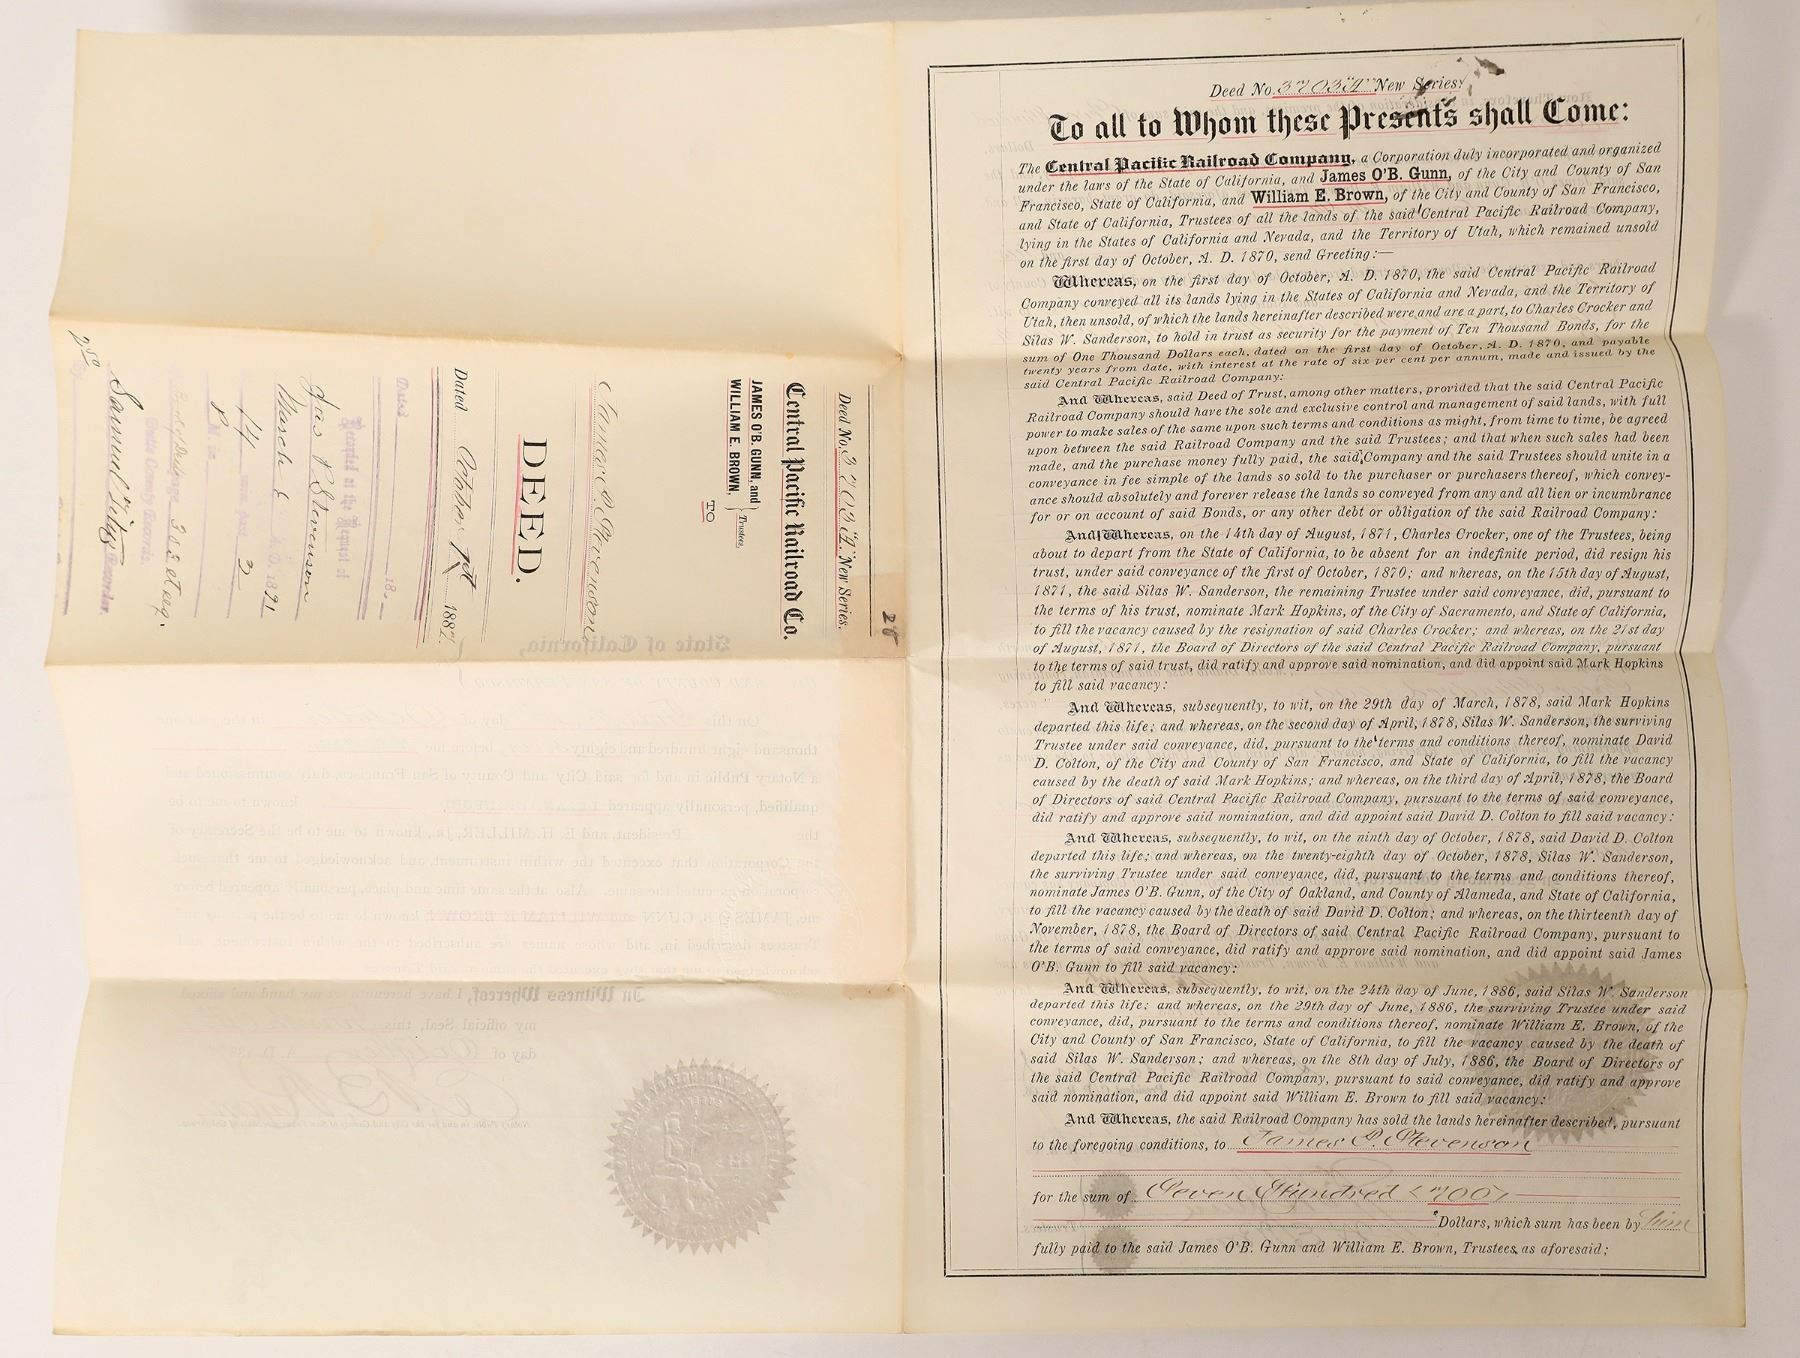 Deed No. 3703 "A" New Series.
To all to Whom these Presents shall Come:
The Central Pacific Railroad Company, a Corporation duly incorporated and organized
under the laws of the State of California, and James O'B. Gunn, of the City and County of San
Francisco, State of California, and William E. Brown, of the City and County of San Francisco,
and State of California, Trustees of all the lands of the said Central Pacific Railroad Company,
lying in the States of California and Nevada, and the Territory of Utah, which remained unsold
on the first day of October, A. D. 1870, send Greeting:—
Whereas, on the first day of October, A. D. 1870, the said Central Pacific Railroad
Company conveyed all its lands lying in the States of California and Nevada, and the Territory of
Utah, then unsold, of which the lands hereinafter described were and are a part, to Charles Crocker and
Silas W. Sanderson, to hold in trust as security for the payment of Ten Thousand Bonds, for the
sum of One Thousand Dollars each, dated on the first day of October, A. D. 1870, and payable
twenty years from date, with interest at the rate of six per cent per annum, made and issued by the
said Central Pacific Railroad Company:
And Whereas, said Deed of Trust, among other matters, provided that the said Central Pacific
Railroad Company should have the sole and exclusive control and management of said lands, with full
power to make sales of the same upon such terms and conditions as might, from time to time, be agreed
upon between the said Railroad Company and the said Trustees; and that when such sales had been
made, and the purchase money fully paid, the said Company and the said Trustees should unite in a
conveyance in fee simple of the lands so sold to the purchaser or purchasers thereof, which convey-
ance should absolutely and forever release the lands so conveyed from any and all lien or incumbrance
for or on account of said Bonds, or any other debt or obligation of the said Railroad Company:
And Whereas, on the 14th day of August, 1871, Charles Crocker, one of the Trustees, being
about to depart from the State of California, to be absent for an indefinite period, did resign his
trust, under said conveyance of the first of October, 1870; and whereas, on the 15th day of August,
1871, the said Silas W. Sanderson, the remaining Trustee under said conveyance, did, pursuant to
the terms of his trust, nominate Mark Hopkins, of the City of Sacramento, and State of California,
to fill the vacancy caused by the resignation of said Charles Crocker; and whereas, on the 21st day
of August, 1871, the Board of Directors of the said Central Pacific Railroad Company, pursuant
to the terms of said trust, did ratify and approve said nomination, and did appoint said Mark Hopkins
to fill said vacancy:
And Whereas, subsequently, to wit, on the 29th day of March, 1878, said Mark Hopkins
departed this life; and whereas, on the second day of April, 1878, Silas W. Sanderson, the surviving
Trustee under said conveyance, did, pursuant to the terms and conditions thereof, nominate David
D. Colton, of the City and County of San Francisco, and State of California, to fill the vacancy
caused by the death of said Mark Hopkins; and whereas, on the third day of April, 1878, the Board
of Directors of said Central Pacific Railroad Company, pursuant to the terms of said conveyance,
did ratify and approve said nomination, and did appoint said David D. Colton to fill said vacancy:
And Whereas, subsequently, to wit, on the ninth day of October, 1878, said David D. Colton
departed this life; and whereas, on the twenty-eighth day of October, 1878, Silas W. Sanderson,
the surviving Trustee under said conveyance, did, pursuant to the terms and conditions thereof,
nominate James O'B. Gunn, of the City of Oakland, and County of Alameda, and State of California,
to fill the vacancy caused by the death of said David D. Colton; and whereas, on the thirteenth day of
November, 1878, the Board of Directors of said Central Pacific Railroad Company, pursuant to
the terms of said conveyance, did ratify and approve said nomination, and did appoint said James
O'B. Gunn to fill said vacancy:
And Whereas, subsequently, to wit, on the 24th day of June, 1886, said Silas W. Sanderson
departed this life; and whereas, on the 29th day of June, 1886, the surviving Trustee under said
conveyance, did, pursuant to the terms and conditions thereof, nominate William E. Brown, of the
City and County of San Francisco, State of California, to fill the vacancy caused by the death of
said Silas W. Sanderson; and whereas, on the 8th day of July, 1886, the Board of Directors of
the said Central Pacific Railroad Company, pursuant to said conveyance, did ratify and approve
said nomination, and did appoint said William E. Brown to fill said vacancy:
And Whereas, the said Railroad Company has sold the lands hereinafter described, pursuant
to the foregoing conditions, to James P. Stevenson
for the sum of Seven Hundred <700>
Dollars, which sum has been by him
fully paid to the said James O'B. Gunn and William E. Brown, Trustees, as aforesaid;
28
Deed No. 3703 "A" New Series.
Central Pacific Railroad Co.
JAMES O'B. GUNN, and
WILLIAM E. BROWN,
Trustees,
TO
James P. Stevenson
DEED.
Dated October 1st 1887
Dated 18
Recorded at the Request of
Jas P Stevenson
March 6 A.D. 1891
at 14 min. past 3
P M. in
page 303 et seq.
Butte County Records.
Samuel Recorder.